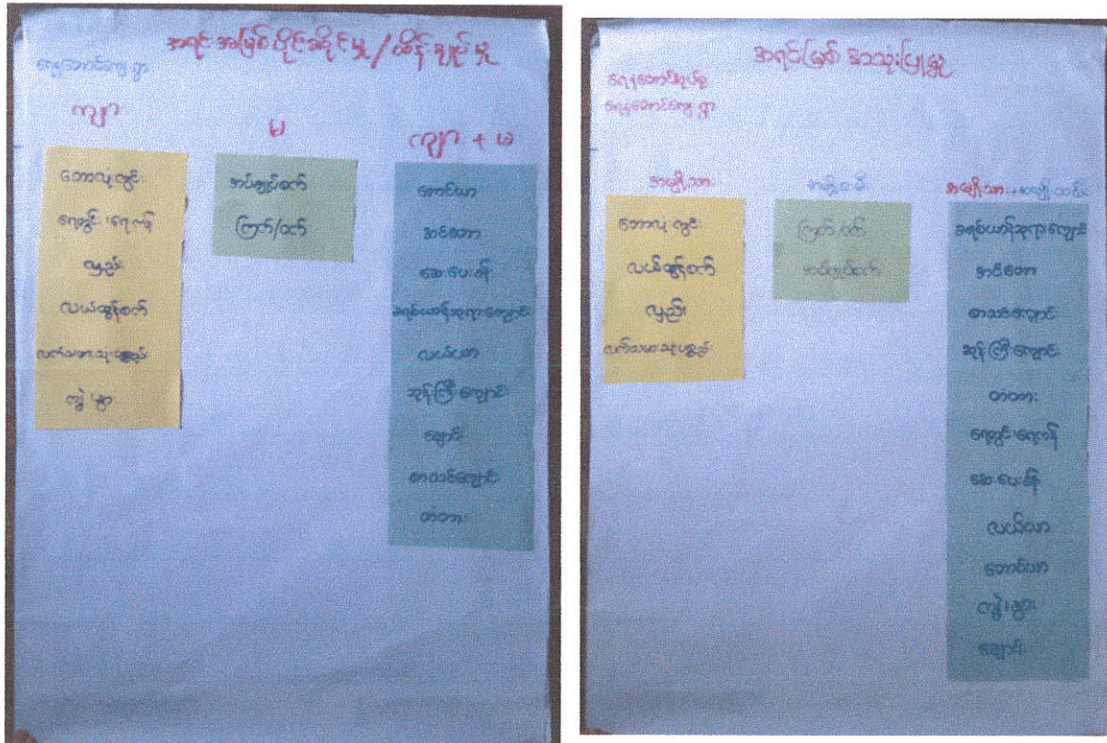 အရင်းအမြစ်ပိုင်ဆိုင်မှု/ထိန်းချုပ်မှု
ရေနံ့အောင်ကျေးရွာ
ကျား
မ
ကျား + မ
ဘောလုံးကွင်း
ရေတွင်း၊ရေကန်
လှည်း
လယ်ထွန်စက်
လက်သမားသုံးပစ္စည်း
ကျွဲ၊နွား
အပ်ချုပ်စက်
ကြက်/ဝက်
တောင်ယာ
အင်တော
ဆေးပေးခန်း
ခရစ်ယာန်ဘုရားကျောင်း
လယ်ယာ
ဘုန်းကြီးကျောင်း
ချောင်း
စာသင်ကျောင်း
တံတား
အရင်းမြစ် အသုံးပြုမှု
အမျိုးသား
အမျိုးသမီး
အမျိုးသား + အမျိုးသမီး
ဘောလုံးကွင်း
လယ်ထွန်စက်
လှည်း
လက်သမားသုံးပစ္စည်း
ကြက်/ဝက်
အပ်ချုပ်စက်
ခရစ်ယာန်ဘုရားကျောင်း
အင်တော
စာသင်ကျောင်း
ဘုန်းကြီးကျောင်း
တံတား
ရေတွင်း၊ရေကန်
ဆေးပေးခန်း
လယ်ယာ
တောင်ယာ
ကျွဲ၊နွား
ချောင်း